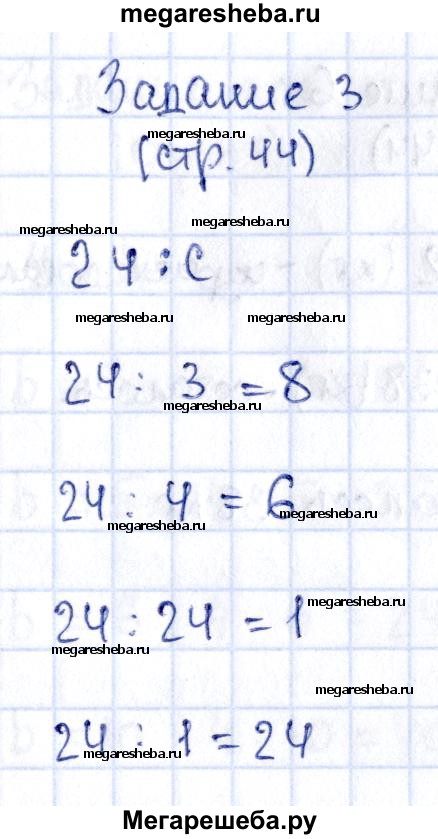 megaresheba.ru
Задание 3
megaresheba.ru
(стр. 44)
megaresheba.ru megaresheba.ru
24 : с
megaresheba.ru megaresheba.ru
24 : 3 = 8
megaresheba.ru
24 : 4 = 6
megaresheba.ru
24 : 24 = 1 megaresheba.ru
megaresheba.ru
megaresheba.ru
24 : 1 = 24
megaresheba.ru
Мегарешеба.ру